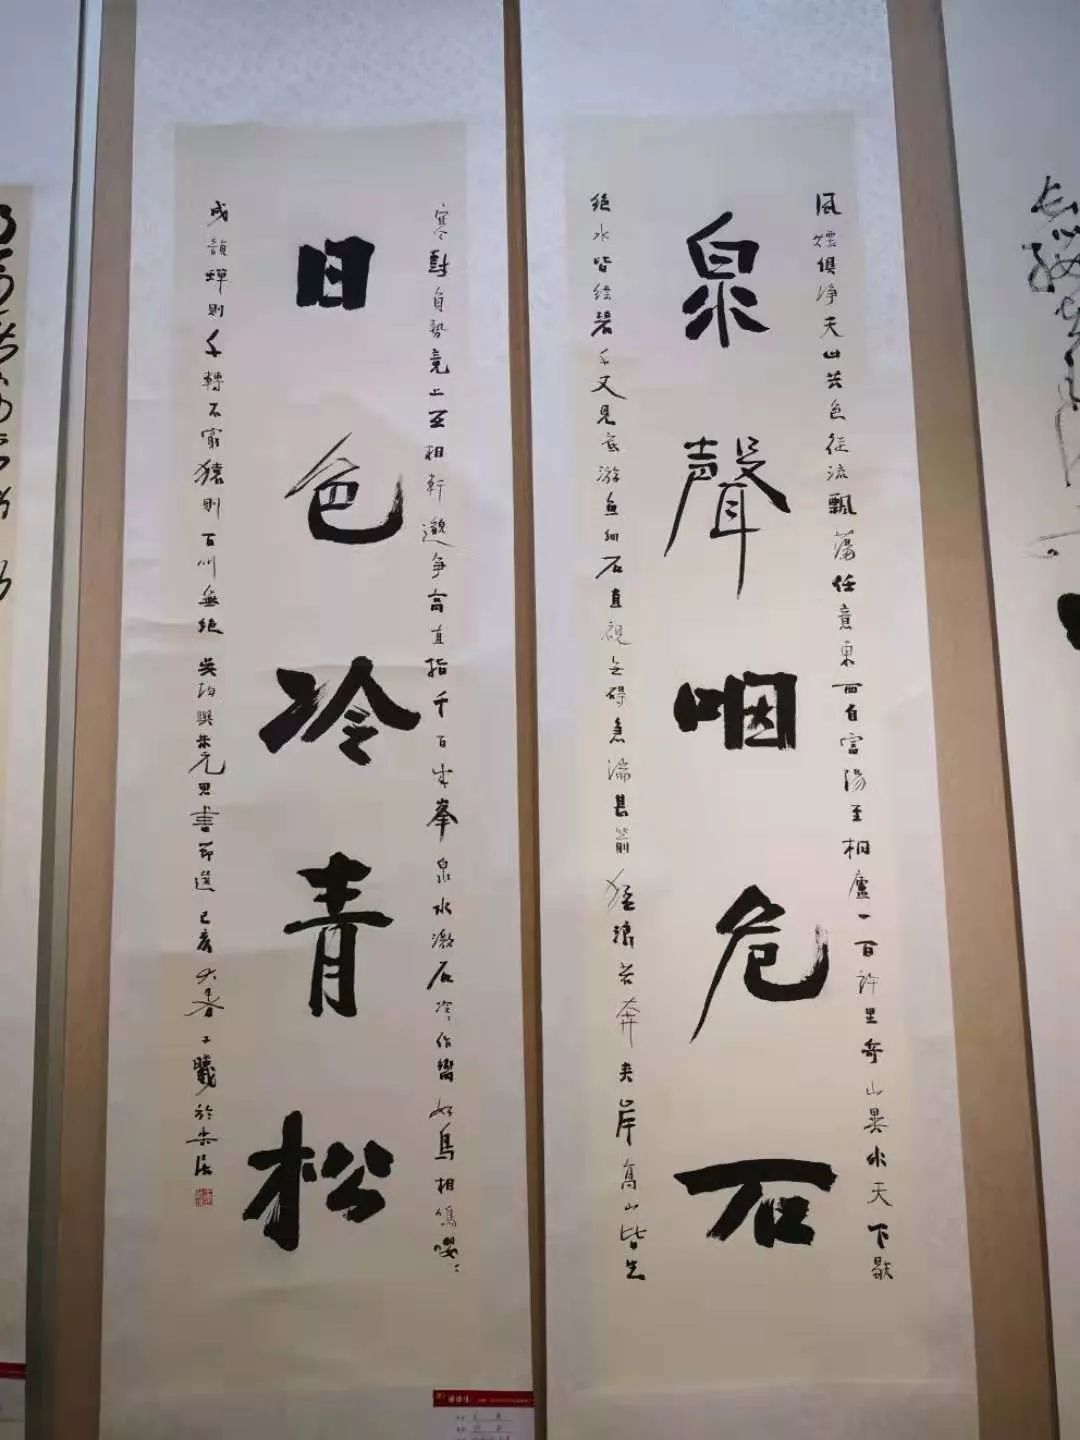 泉聲咽危石
風煙俱淨天山共色從流飄蕩任意東西自富陽至桐廬一百許里奇山異水天下獨
絕水皆縹碧千丈見底游魚細石直視無礙急湍甚箭猛浪若奔夾岸高山皆生
日色冷青松
寒對負勢競上互相軒邈爭高直指千百成峯泉水激石泠泠作響好鳥相鳴嚶嚶
成韻蟬則千轉不窮猿則百叫無絕 吳均與朱元思書節選 己亥大暑